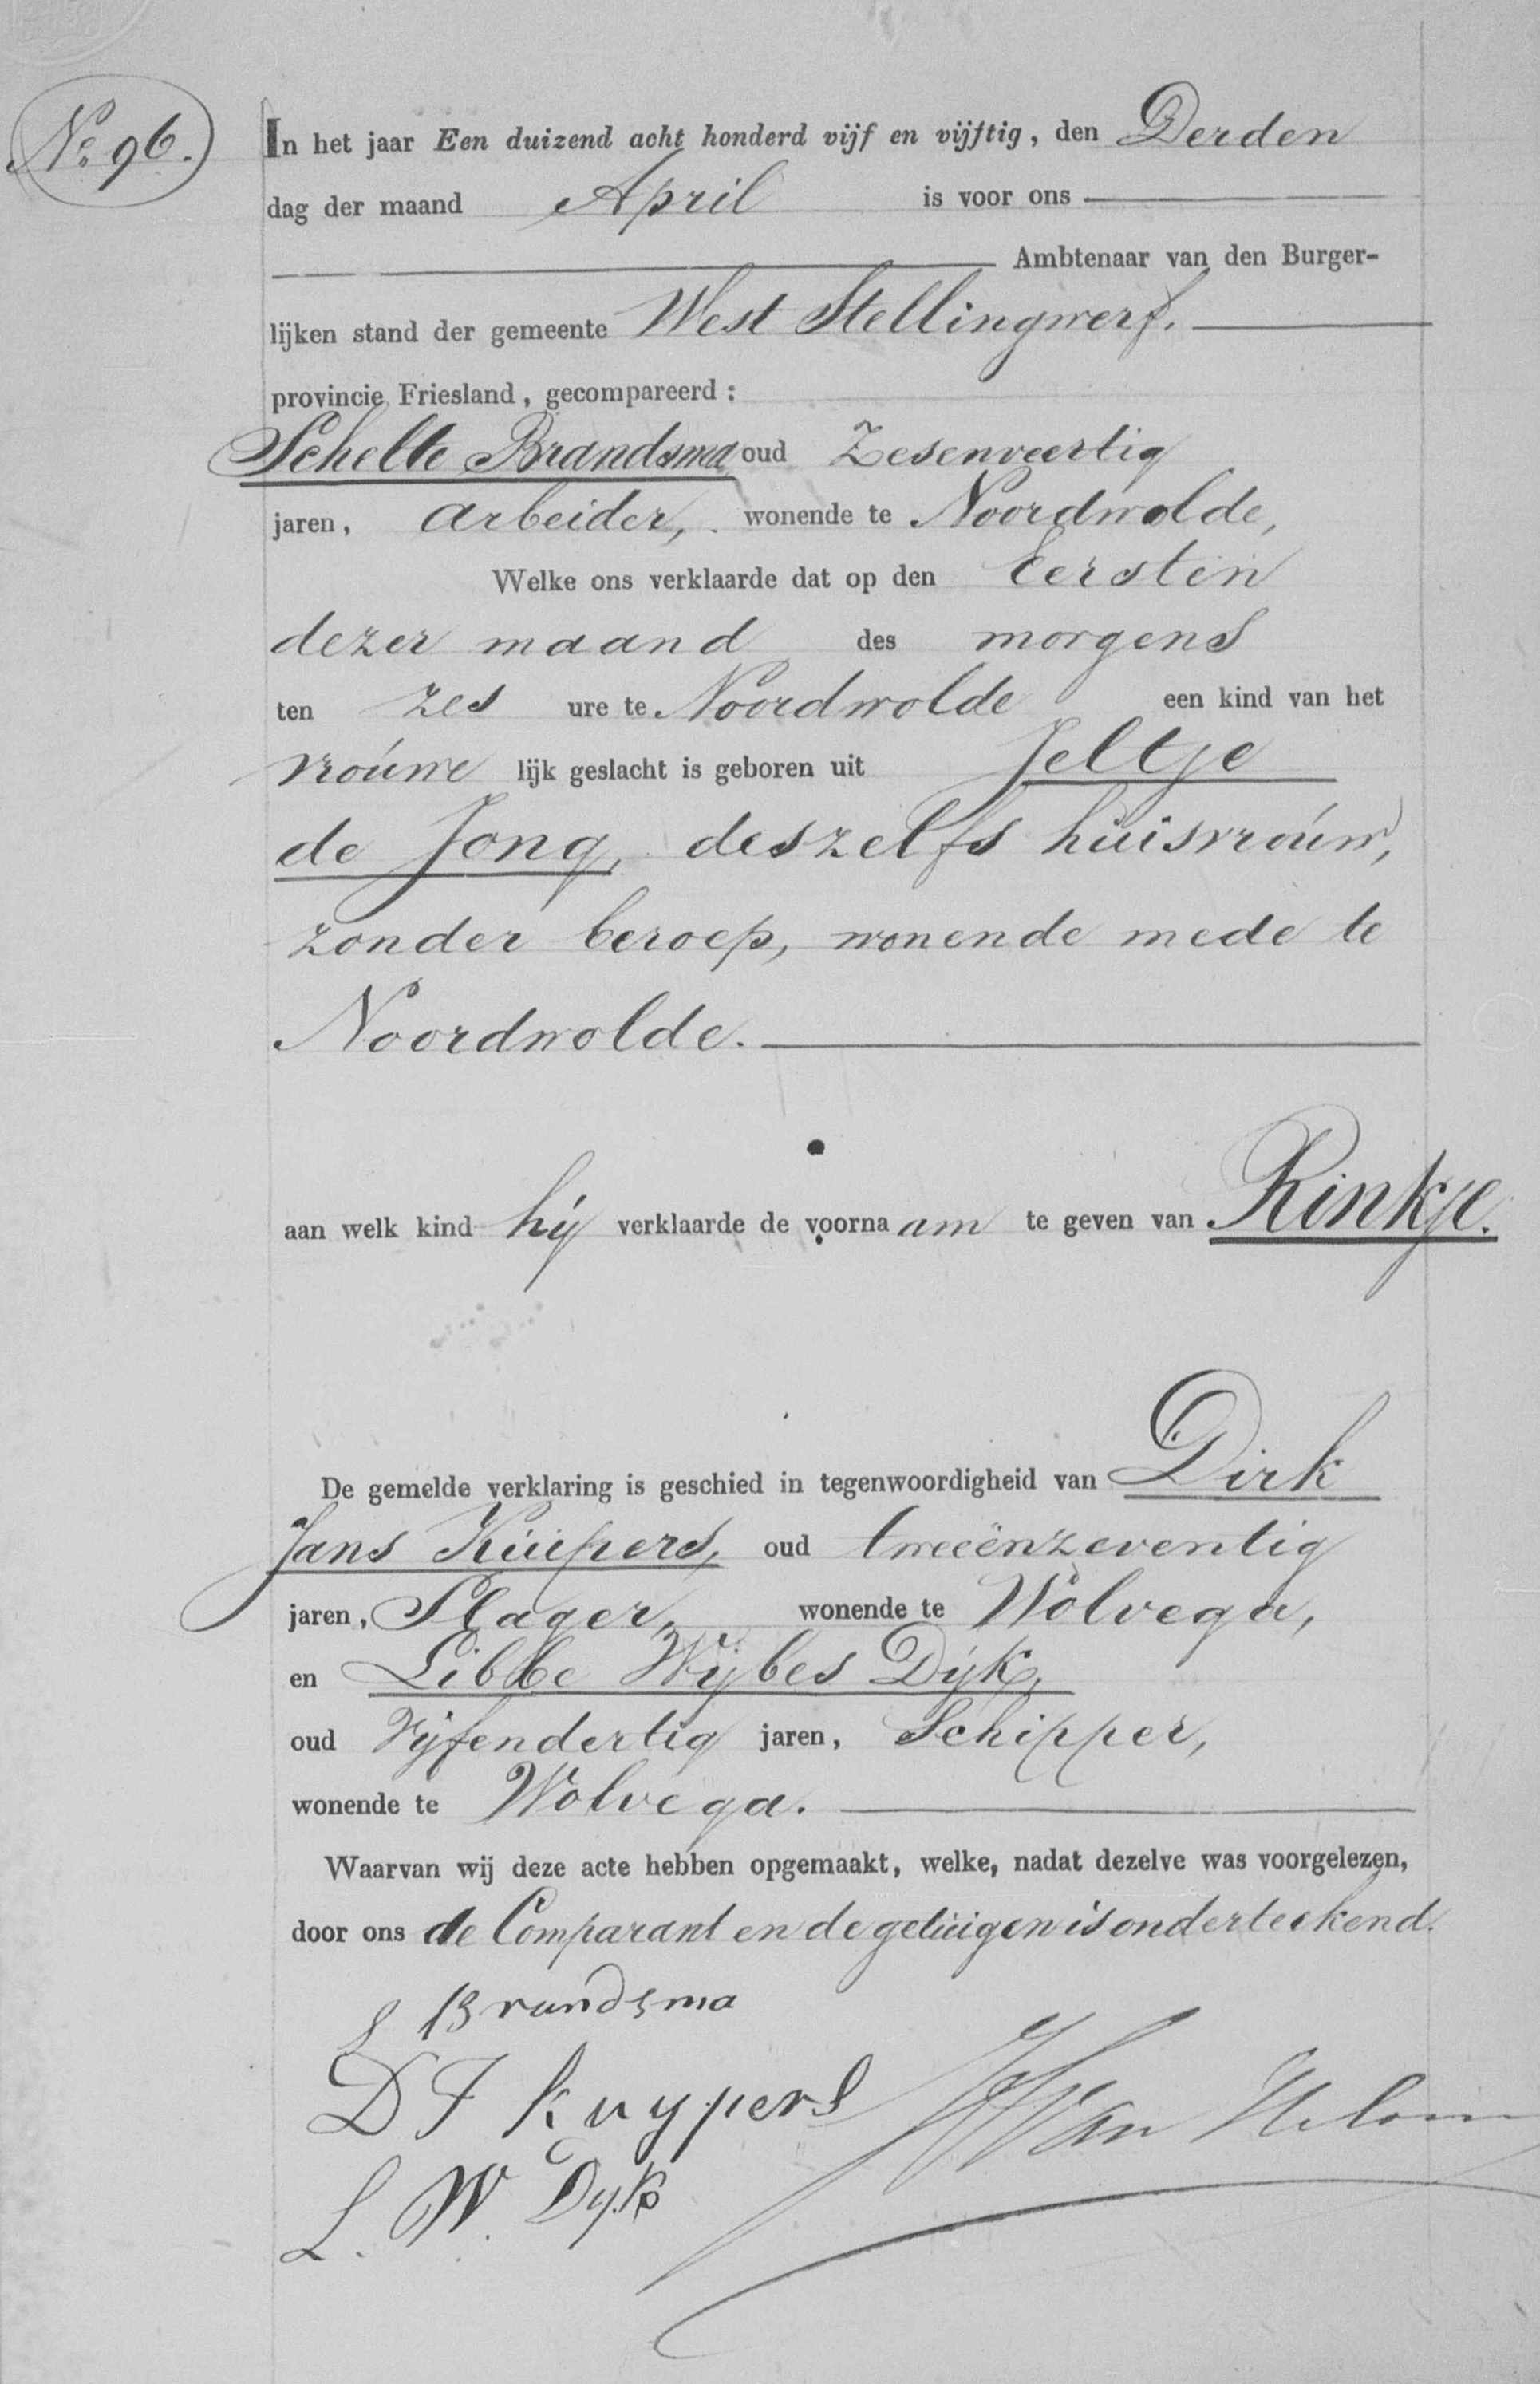 No. 96.
In het jaar Een duizend acht honderd vijf en vijftig, den Derden
dag der maand April is voor ons
Ambtenaar van den Burger-
lijken stand der gemeente West Stellingwerf.
provincie Friesland, gecompareerd:
Schelte Brandsma oud Zesenveertig
jaren, arbeider, wonende te Noordwolde,
Welke ons verklaarde dat op den Eersten
dezer maand des morgens
ten zes ure te Noordwolde een kind van het
vrouwe lijk geslacht is geboren uit Jeltje
de Jong, deszelfs huisvrouw,
zonder beroep, wonende mede te
Noordwolde.
aan welk kind hij verklaarde de voorna am te geven van Rinkje.
De gemelde verklaring is geschied in tegenwoordigheid van Dirk
Jans Kuipers, oud tweeënzeventig
jaren, Slager, wonende te Wolvega,
en Libbe Wijbes Dijk,
oud Vijfendertig jaren, Schipper,
wonende te Wolvega.
Waarvan wij deze acte hebben opgemaakt, welke, nadat dezelve was voorgelezen,
door ons de Comparant en de getuigen is onderteekend.
S Brandsma
D J Kuypers
Van Heloma
L. W. Dyk